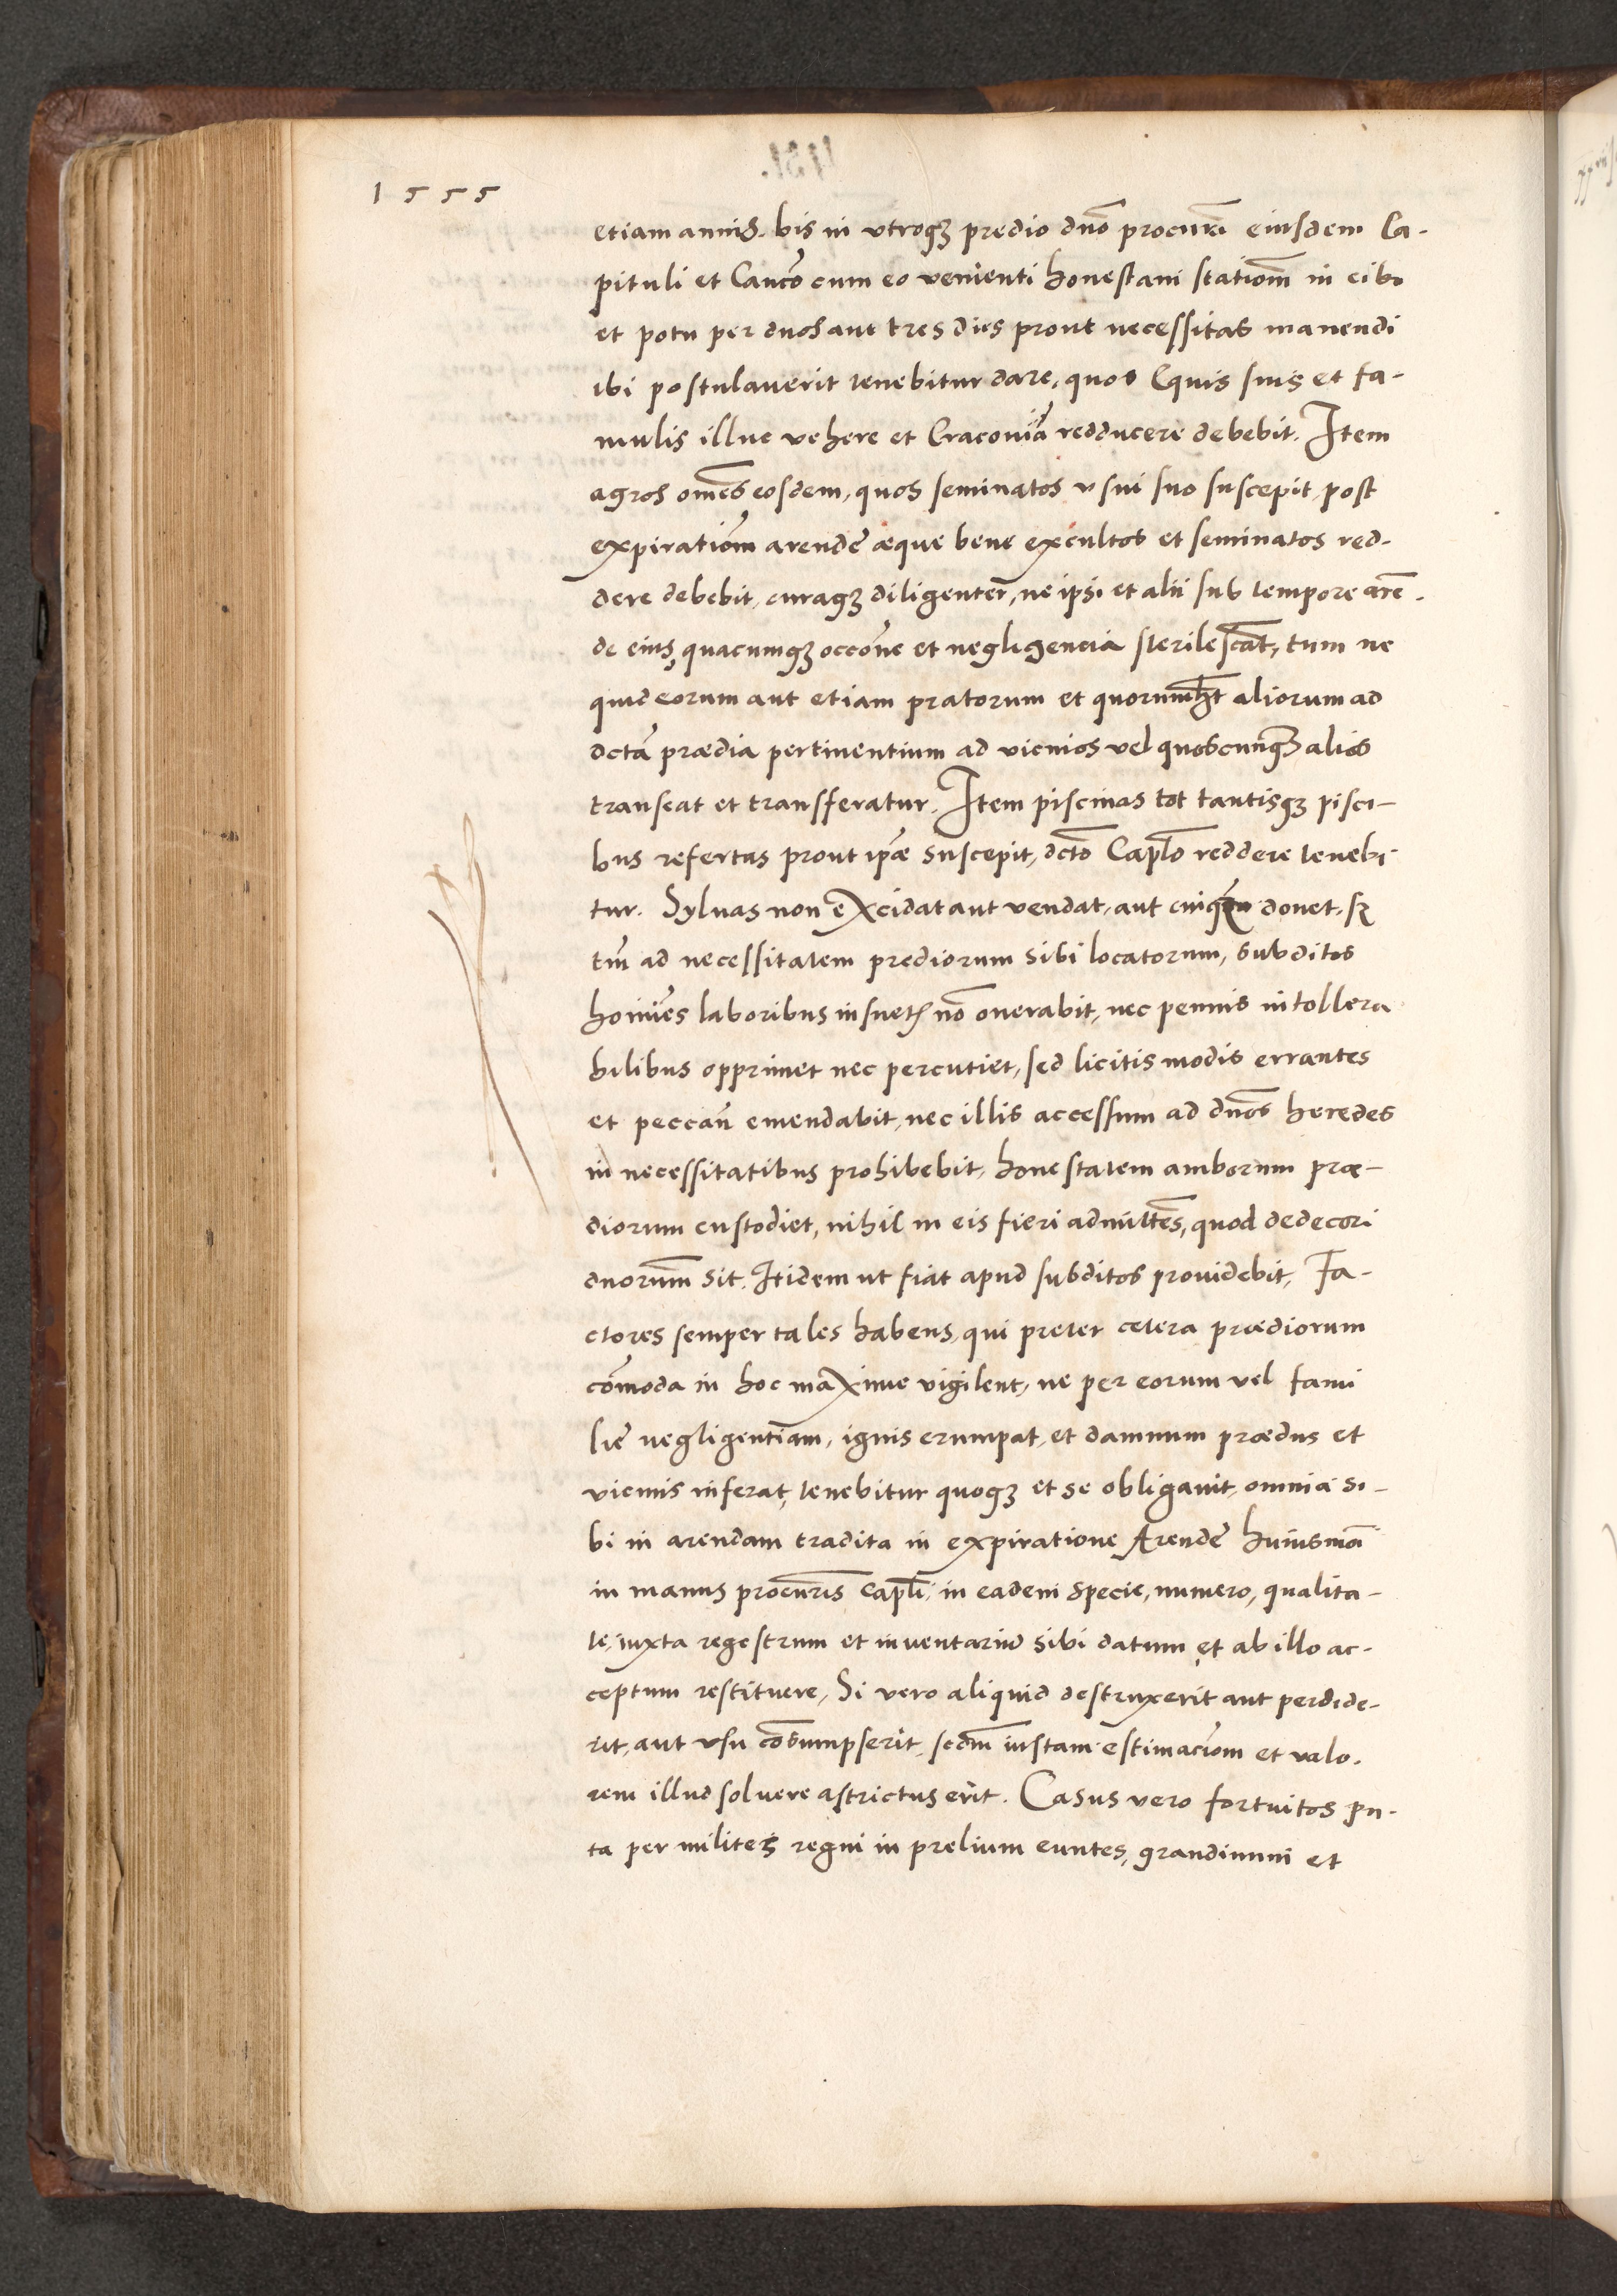 1555
etiam annis. bis in vtroqȝ predio dno procuri eiusdem Ca-
pituli et Canco cum eo venienti honestam stationm in cibo
et potu per duos aut tres dies prout necessitas manendi
ibi postulauerit tenebitur dare, quos Equis suis et fa-
mulis illuc vehere et Cracouiã redducere debebit. Item
agros omes eosdem, quos seminatos vsui suo suscepit, post
expirationm arende æque bene excultos et seminatos red-
dere debebit, curaqȝ diligenter, ne ipsi et alii sub tempore aren-
de eius, quacumqȝ occone et negligencia sterilescat, tum ne
quid eorum aut etiam pratorum et quorumlȝt aliorum ad
dcta prædia pertinentium ad vicinios vel quoscunqȝ alios
transeat et transferatur. Item piscinas tot tantisqȝ pisci-
bus refertas prout ipæ suscepit, dcto Caplo reddere tenebi-
tur. Syluas non excidat aut vendat, aut cuiqȝ donet, sȝ
tm ad necessitatem prediorum sibi locatorum, subditos
hoines laboribus insuetis no onerabit, nec pennis intollera
bilibus opprimet nec percutiet, sed licitis modis errantes
et peccan emendabit, nec illis accessum ad dnos heredes
in necessitatibus prohibebit, honestatem amborum præ-
diorum custodiet, nihil in eis fieri admittes, quod dedecori
dnorum sit. Itidem ut fiat apud subditos prouidebit, Fa-
ctores semper tales habens, qui preter cetera prædiorum
comoda in hoc maxime vigilent, ne per eorum vel fami
lie negligentiam, ignis erumpat, et damnum prædiis et
vicinis inferat, tenebitur quoqȝ et se obligauit, omnia si-
bi in arendam tradita in expiratione Arende huiusmoi
in manus procuris capli, in eadem specie, numero, qualita-
te, iuxta regestrum et inuentariũ sibi datum et ab illo ac-
ceptum restituere, Si vero aliquid destruxerit aut perdide-
rit, aut vsu cosumpserit, scdm iustam estimaciom et valo-
rem illud soluere astrictus erit. Casus vero fortuitos pu-
ta per milites regni in prelium euntes, grandinum et